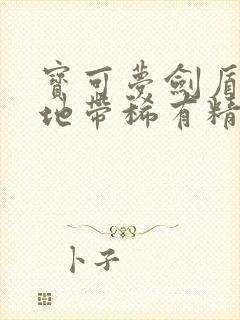 寶可夢劍盾
地帶稀有精
卜子